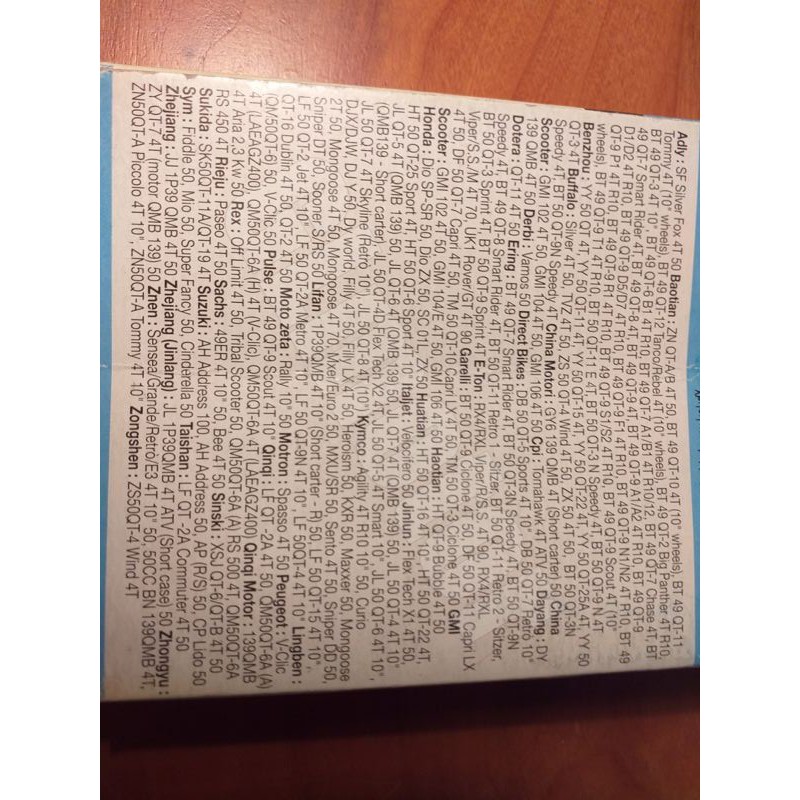 Adly : SF Silver Fox 4T 50 Baotian : ZN QT-A/B 4T 50, BT 49 QT-10 4T (10" wheels), BT 49 QT-11
Tommy 4T (10" wheels), BT 49 QT-12 Tanco/Rebel 4T (10" wheels), BT 49 QT-2 Big Panther 4T R10,
BT 49 QT-3 4T 10", BT 49 QT-6 B1 4T R10, BT 49 QT-7 J1/B1 4T R10/12, BT 49 QT-7 Chase 4T, BT
49 QT-7 Smart Rider 4T, BT 49 QT-8 4T, BT 49 QT-9 4T, BT 49 QT-9 A1/A2 4T R10, BT 49 QT-9
D1/D2 4T R10, BT 49 QT-9 D5/D7 4T R10, BT 49 QT-9 F1 4T R10, BT 49 QT-9 N1/N2 4T R10, BT 49
QT-9 P1 4T R10, BT 49 QT-9 R1 4T R10, BT 49 QT-9 S1/S2 4T R10, BT 49 QT-9 Scout 4T (10"
wheels), BT 49 QT-9 T1 4T R10, BT 50 QT-11 E 4T, BT 50 QT-3 N Speedy 4T, BT 50 QT-9 N 4T
Benzhou : YY 50 QT 4T, YY 50 QT-11 4T, YY 50 QT-15 4T, YY 50 QT-22 4T, YY 50 QT-25A 4T, YY 50
QT-3 4T Buffalo : Silver 4T 50, TVZ 4T 50, ZS 50 QT-4 Wind 4T 50, ZX 50 4T 50, BT 50 QT-3N
Speedy 4T, BT 50 QT-9N Speedy 4T China Motori : GY6 139 QMB 4T (Short carter) 50 China
Scooter : GMI 102 4T 50, GMI 104 4T 50, GMI 106 4T 50 Cpi : Tomahawk 4T ATV 50 Dayang : DY
139 QMB 4T 50 Derbi : Vamos 50 Direct Bikes : DB 50 QT-5 Sports 4T 10", DB 50 QT-7 Retro 10"
Dotera : QT-11 4T 50 Ering : BT 49 QT-7 Smart Rider 4T, BT 50 QT-3N Speedy 4T, BT 50 QT-9N
Speedy 4T, BT 49 QT-8 Smart Rider 4T, BT 50 QT-11 Retro 1 - Sitzer, BT 50 QT-11 Retro 2 - Sitzer,
BT 50 QT-3 Sprint 4T, BT 50 QT-9 Sprint 4T E-Ton : RX4/RXL Viper/R/S.S. 4T 90, RX4/RXL
Viper/S.S./M 4T 70, UK1 Rover/GT 4T 90 Garelli : BT 50 QT-9 Ciclone 4T 50, DF 50 QT-11 Capri LX
4T 50, DF 50 QT-7 Capri 4T 50, TM 50 QT-10 Capri LX 4T 50, TM 50 QT-3 Ciclone 4T 50 GMI
Scooter : GMI 102 4T 50, GMI 104/E 4T 50, GMI 106 4T 50 Haotian : HT QT-9 Bubble 4T 50
Honda : Dio SP-SR 50, Dio ZX 50, SC 01L, ZX 50 Huatian : HT 50 QT-16 4T 10", HT 50 QT-22 4T,
HT 50 QT-25 Sport 4T, HT 50 QT-6 Sport 4T 10" Italjet : Velocifero 50 Jinlun : Flex Tech X1 4T 50,
JL QT-5 4T (QMB 139) 50, JL QT-6 4T (QMB 139) 50, JL QT-7 4T (QMB 139) 50, JL 50 QT-4 4T 10"
(QMB139 - Short carter), JL 50 QT-4D Flex Tech X2 4T, JL 50 QT-5 4T Smart 10", JL 50 QT-6 4T 10",
JL 50 QT-7 4T Skyline (Retro 10"), JL 50 QT-8 4T (10") Kymco : Agility 4T R10 10" 50, Curio
DJX/DJW, DJ Y-50, Dy world, Filly 4T 50, Filly LX 4T 50, Heroism 50, KXR 50, Maxxer 50, Mongoose
2T 50, Mongoose 4T 50, Mongoose 4T 70, Mxer/Euro 2 50, MXU/SR 50, Sento 4T 50, Sniper DD 50,
Sniper DT 50, Sooner, S/RS 50 Lifan : 1P39QMB 4T 10" (Short carter - R) 50, LF 50 QT-15 4T 10",
LF 50 QT-2 Jet 4T 10", LF 50 QT-2A Metro 4T 10", LF 50 QT-9N 4T 10", LF 50QT-4 4T 10" Lingben :
QT-16 Dublin 4T 50, QT-2 4T 50 Moto zeta : Rally 10" 50 Motron : Spasso 4T 50 Peugeot : V-Clic
(QM50QT-6) 50, V-Clic 50 Pulse : BT 49 QT-9 Scout 4T 10" Qinqi : LF QT -2A 4T 50, QM50QT-6A (A)
4T (LAEAGZ400), QM50QT-6A (H) 4T (V-Clic), QM50QT-6A 4T (LAEAGZ400) Qinqi Motor : 139QMB
4T Aria 2.3 Kw 50 Rex : Off Limit 4T 50, Tribal Scooter 50, QM50QT-6A (A) RS 500 4T, QM50QT-6A
RS 450 4T Rieju : Paseo 4T 50 Sachs : 49ER 4T 10" 50, Bee 4T 50 Sinski : XSJ QT-6/QT-B 4T 50
Sukida : SK50QT-11A/QT-19 4T Suzuki : AH Address 100, AH Address 50, AP (R/S) 50, CP Lido 50
Sym : Fiddle 50, Mio 50, Super Fancy 50, Cinderella 50 Taishan : LF QT -2A Commuter 4T 50
Zhejiang : JJ 1P39 QMB 4T 50 Zhejiang (Jinlang) : JL 1P39QMB 4T ATV (Short case) 50 Zhongyu :
ZY QT-7 4T (motor QMB 139) 50 Znen : Sensea/Grande/Retro/E3 4T 10" 50, 50CC BN 139QMB 4T,
ZN50QT-A Piccolo 4T 10", ZN50QT-A Tommy 4T 10" Zongshen : ZS50QT-4 Wind 4T